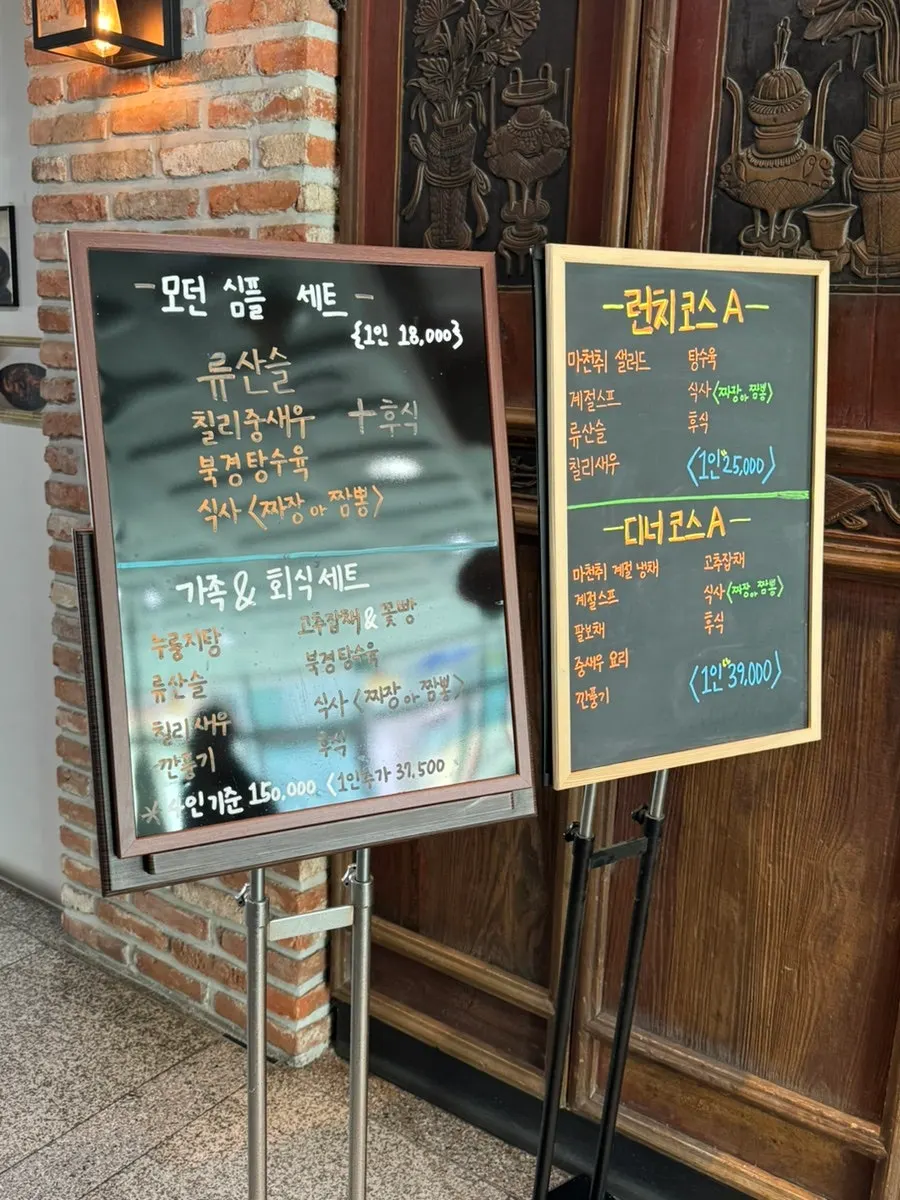 -모던 심플 세트-
{1인 18,000}
류산슬
칠리중새우 +후식
북경탕수육
식사<짜장 or 짬뽕>
가족 & 회식세트
누룽지탕
류산슬
칠리새우
깐풍기
고추잡채 & 꽃빵
북경탕수육
식사<짜장 or 짬뽕>
후식
인기준 150,000 <1인추가 37,500
-런치코스 A-
마천취 샐러드
계절스프
류산슬
칠리새우
탕수육
식사<짜장 or 짬뽕>
후식
<1인 25,000>
-디너코스 A-
마천취 계절 냉채
계절스프
팔보채
중새우 요리
깐풍기
고추잡채
식사<짜장 or 짬뽕>
후식
<1인 39,000>